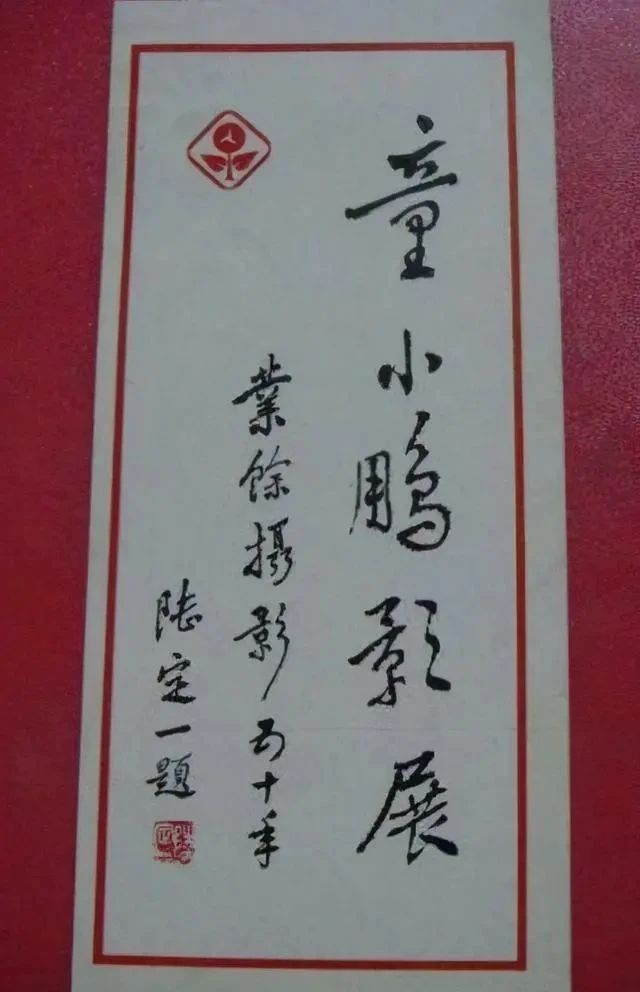 童小鵬影展
業餘攝影五十年
陸定一題